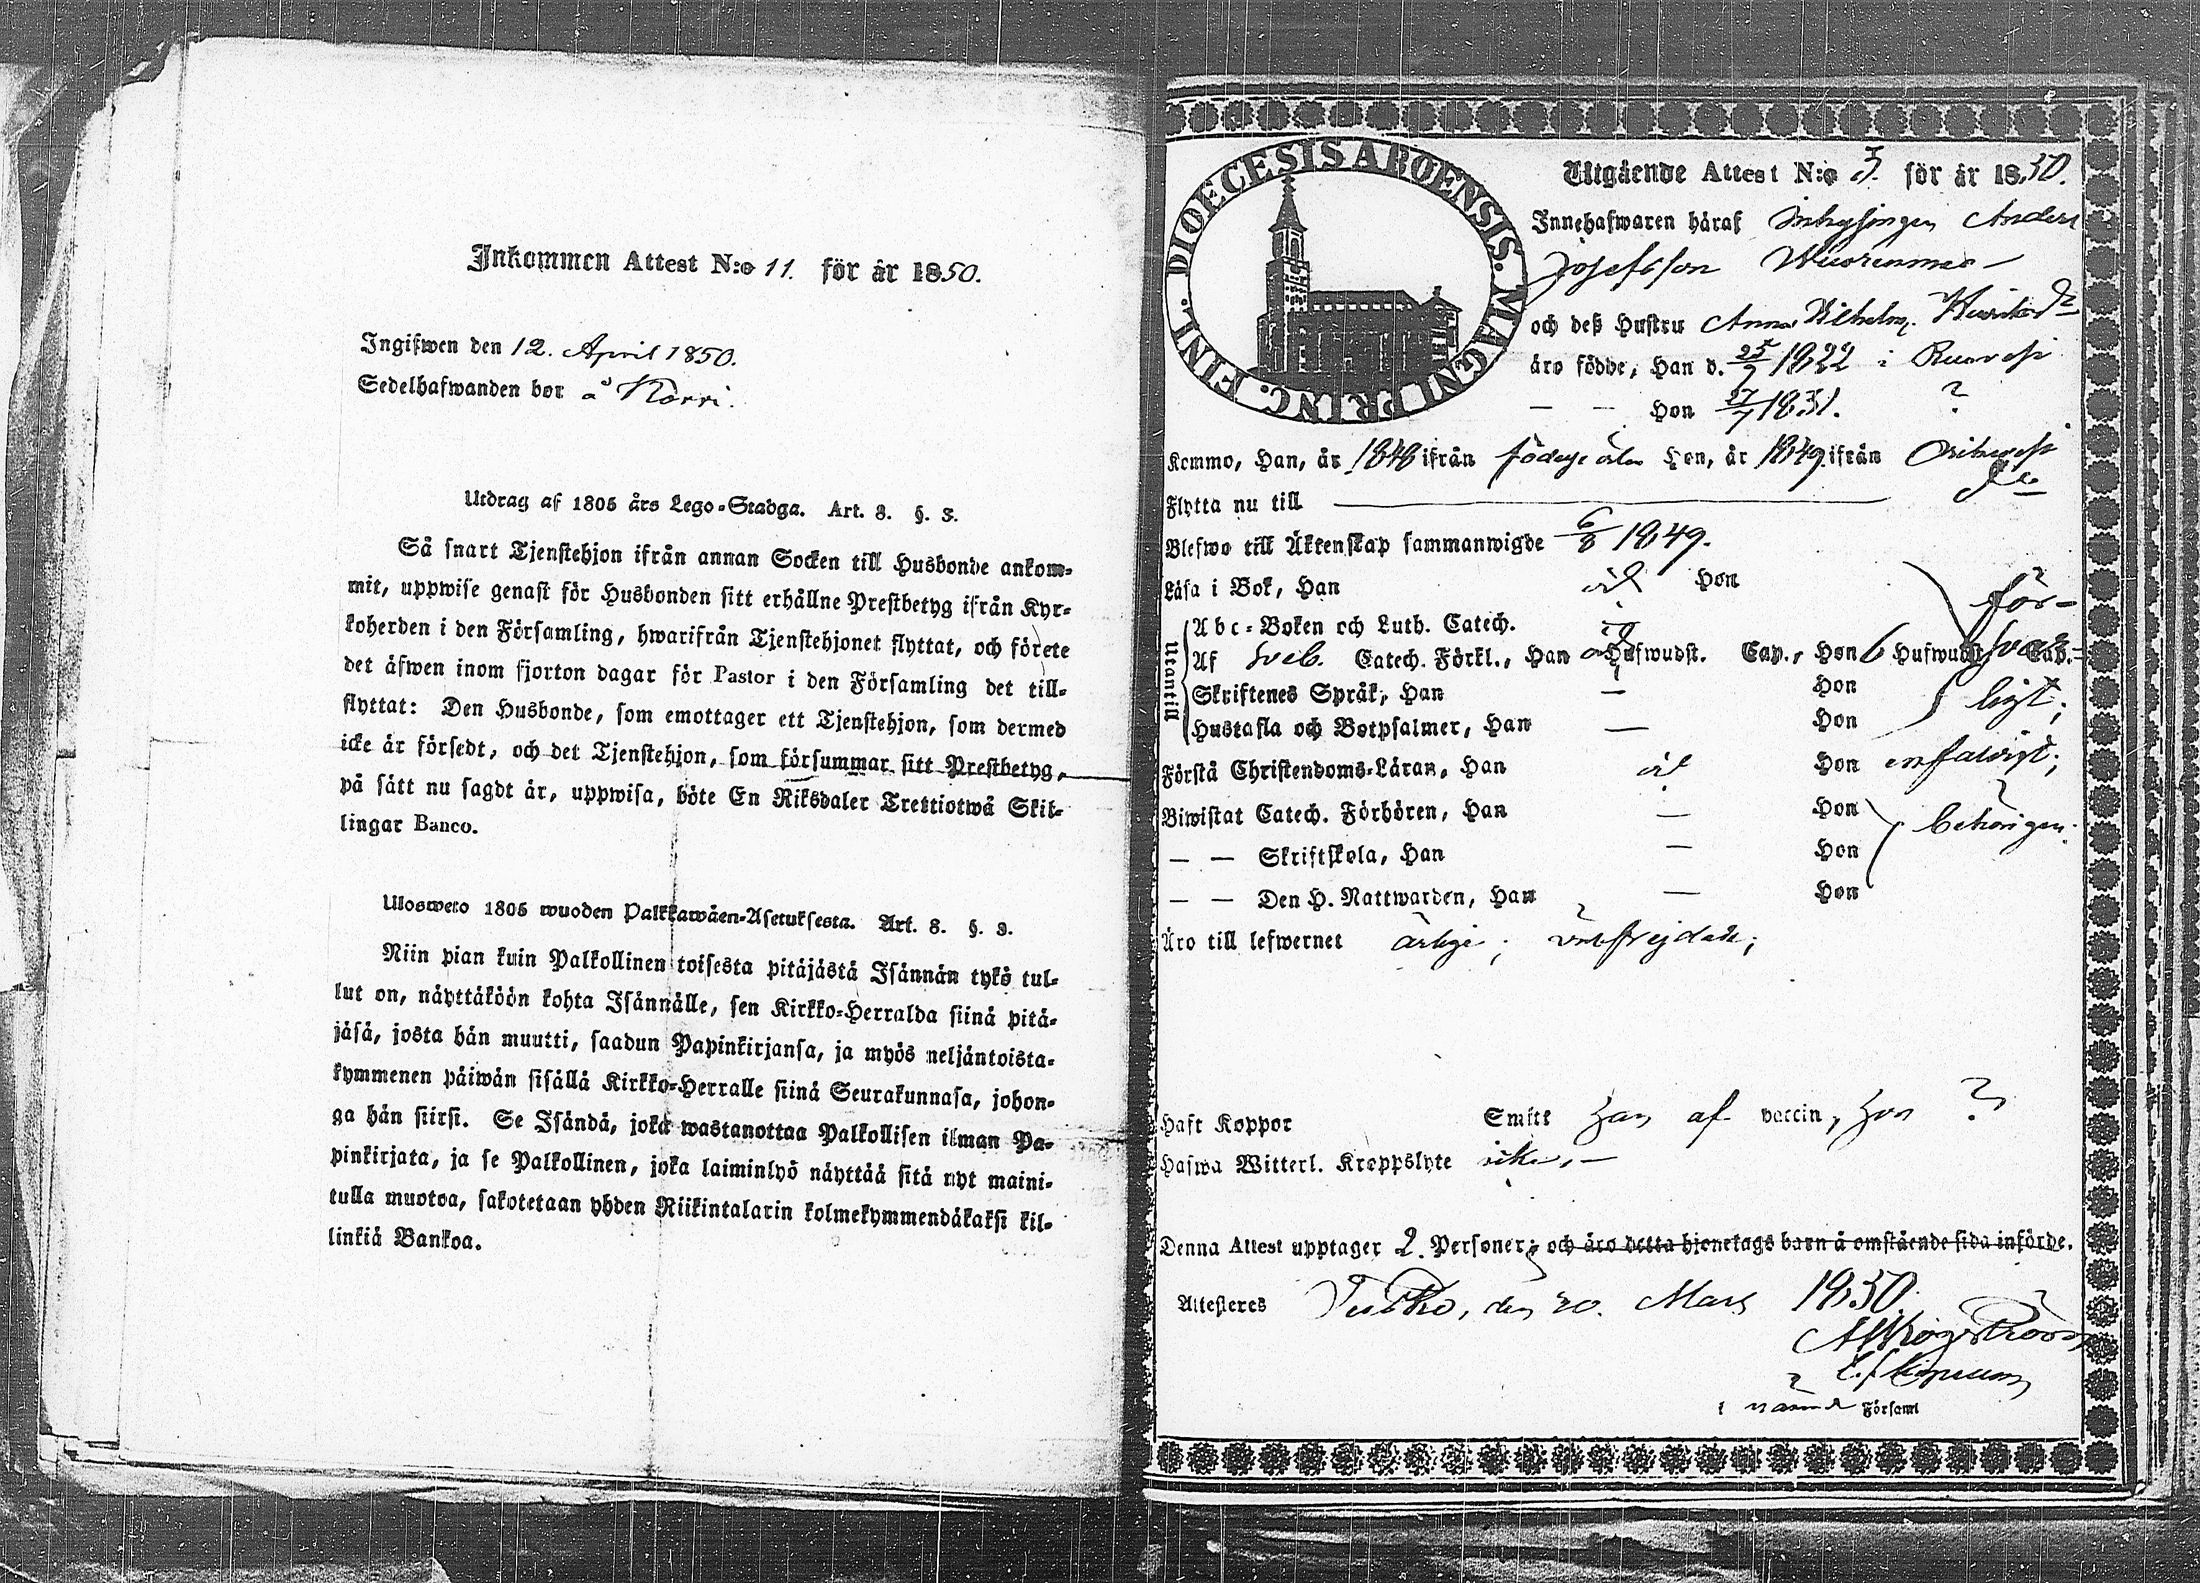 Inkommen Attest N:o 11. för år 1850.
Ingifwen den 12. April 1850.
Sedelhafwanden bor å Körri.
Utdrag af 1805 års Lego-Stadga. Art. 8. §. 3.
Så snart Tjenstehjon ifrån annan Socken till Husbonde ankom-
mit, uppwise genast för Husbonden sitt erhållne Prestbetyg ifrån Kyr-
koherden i den Församling, hwarifrån Tjenstehjonet flyttat, och förete
det äfwen inom fjorton dagar för Pastor i den Församling det till-
flyttat: Den Husbonde, som emottager ett Tjenstehjon, som dermed
icke är försedt, och det Tjenstehjon, som försummar sitt Prestbetyg,
på sätt nu sagdt är, uppwisa, böte En Riksdaler Trettiotwå Skil-
lingar Banco.
Ulosweto 1805 wuoden Palkkawäen-Asetuksesta. Art. 8. §. 3.
Niin pian kuin Palkollinen toisesta pitäjästä Isännän tykö tul-
lut on, näyttäköön kohta Isännälle, sen Kirkko-Herralda siinä pitä-
jäsä, josta hän muutti, saadun Papinkirjansa, ja myös neljäntoista-
kymmenen päiwän sisällä Kirkko-Herralle siinä Seurakunnasa, johon-
ga hän siirsi. Se Isändä, joka wastanottaa Palkollisen ilman Pa-
pinkirjata, ja se Palkollinen, joka laiminlyö näyttää sitä nyt maini-
tulla muotoa, sakotetaan yhden Riikintalarin kolmekymmendäkaksi kil-
linkiä Bankoa.
DIOECESIS ABOENSIS. MAGNI PRINC. FINL.
Utgående Attest N:o 3. för år 1850.
Innehafwaren häraf Inhysingen Anders
Josefsson Wuorenmaa
och deß Hustru Anna Wilhelm.
äro födde, Han d. 25/7 1822 i Ruovesi
— — Hon 27/7 1831. ?
Kommo, Han, år 1848 ifrån födelse orten Hon, år 1849 ifrån Orihvesi
Flytta nu till
Blefwo till Äktenskap sammanwigde 6/8 1849.
Läsa i Bok, Han väl Hon för-
Utantill
Abc-Boken och Luth. Catech.
Af Sveb. Catech. Förkl., Han Hufwudst. Cap., Hon 6 Hufwudst. Cap. svar-
Skriftenes Språk, Han — Hon ligt;
Hustafla och Botpsalmer, Han — Hon
Förstå Christendoms-Läran, Han väl Hon enfaldigt;
Biwistat Catech. Förhören, Han — Hon behörigen.
— — Skriftskola, Han — Hon
— — Den H. Nattwarden, Han — Hon
Äro till lefwernet ärlige; välfrejdade;
Haft Koppor Smitt Han af vaccin, Hon ?
Hafwa Witterl. Kroppslyte icke.—
Denna Attest upptager 2. Personer; och äro detta hjonelags barn å omstående sida införde.
Attesteres den 20. Mars 1850.
i nämnde Församl